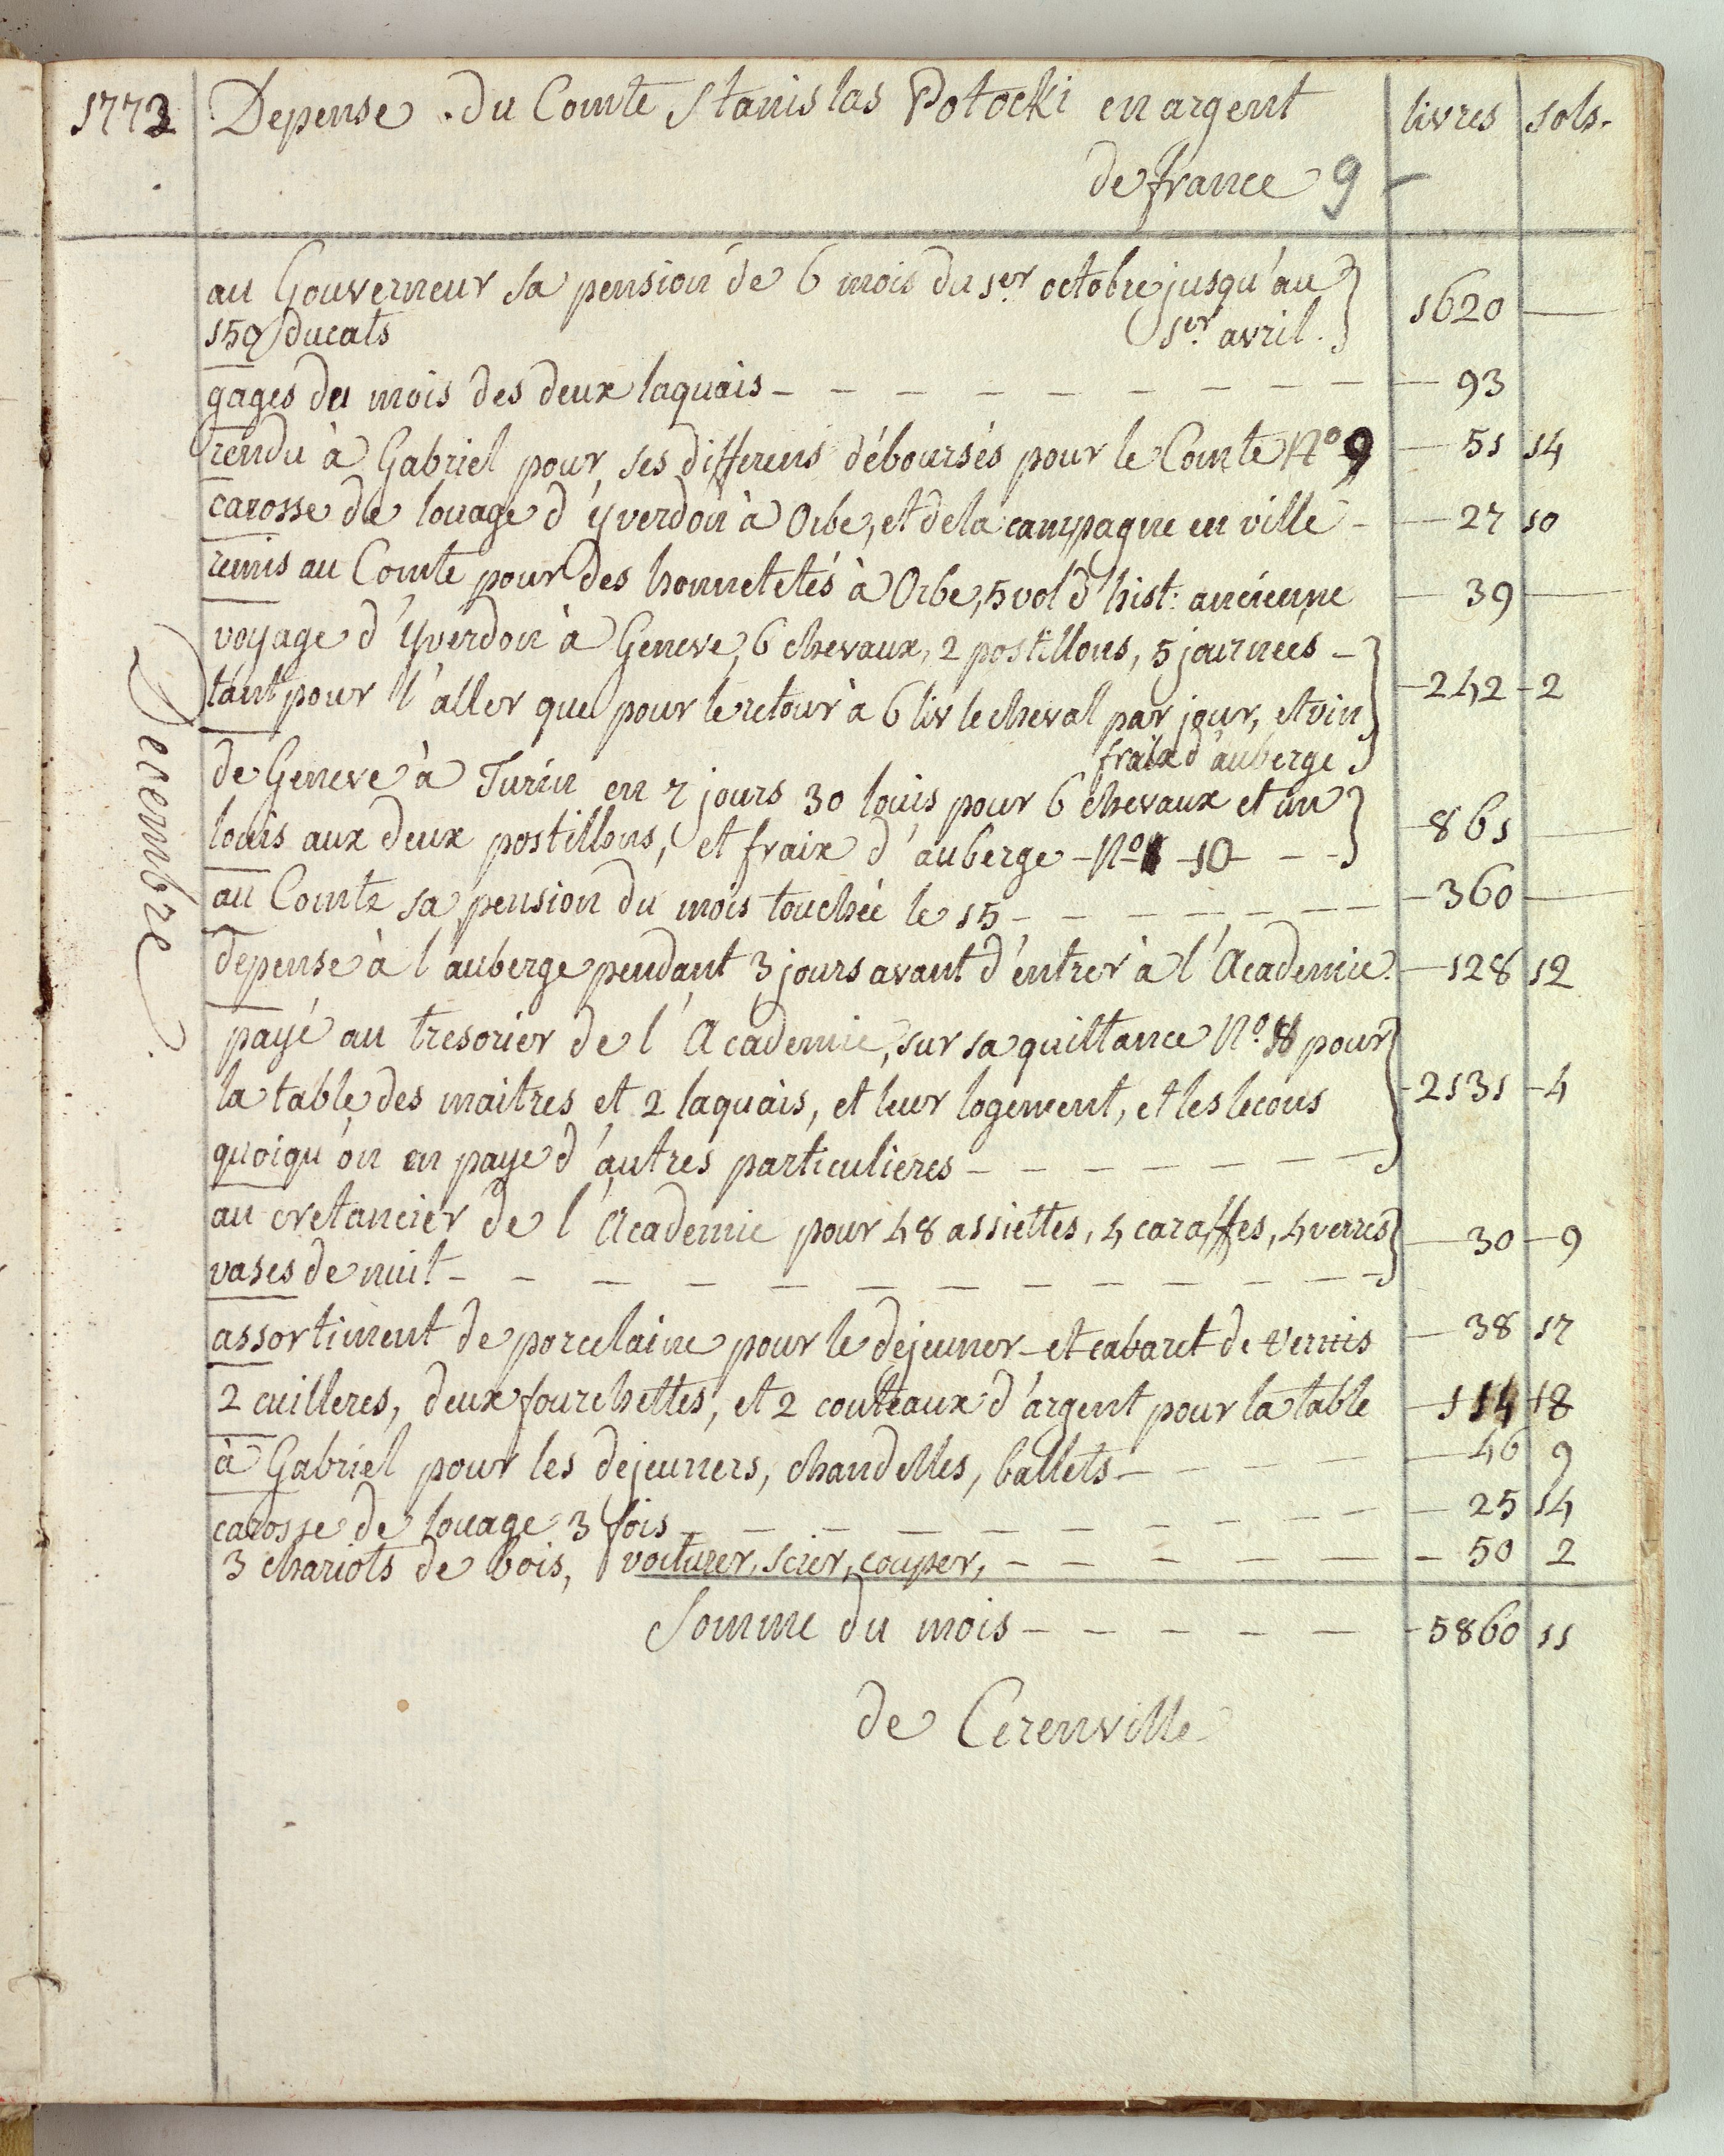 1772 Depense du Comte Stanislas Potocki en argent livres sols.
de france 9
au Gouverneur sa pension de 6 mois du 1er octobre jusqu'au
150 ducats 1er avril. 1620
gages du mois des deux laquais 93
rendu à Gabriel pour ses differens déboursés pour le Comte No 9 51 14
carosse de louage d'Yverdon à Orbe, et de la campagne en ville 27 10
remis au Comte pour des honnetetés à Orbe, 5 vol d'hist: ancienne 39
voyage d'Yverdon à Geneve, 6 chevaux, 2 postillons, 5 journees
tant pour l'aller que pour le retour à 6 liv le cheval par jour, et vin 242 2
fraix d'auberge
de Geneve à Turin en 7 jours 30 louis pour 6 chevaux et un
louis aux deux postillons, et fraix d'auberge No 10 861
au Comte sa pension du mois touchée le 15 360
depense à l'auberge pendant 3 jours avant d'entrer à l'Academie. 128 12
payé au tresorier de l'Academie, sur sa quittance No pour
la table des maitres et 2 laquais, et leur logement, et les lecons 2131 4
quoiqu'on en paye d'autres particulieres
au cretancier de l'Academie pour 48 assiettes, 4 caraffes, 4 verres
vases de nuit 30 9
assortiment de porcelaine pour le dejeuner et cabaret de vernis 38 17
2 cuilleres, deux fourchettes, et 2 couteaux d'argent pour la table 114 18
à Gabriel pour les dejeuners, chandelles, ballets 46 9
carosse de louage 3 fois 25 14
3 chariots de bois, voiturer, scier, couper, 50 2
Somme du mois 5860 11
de Cerenville
Decembre.